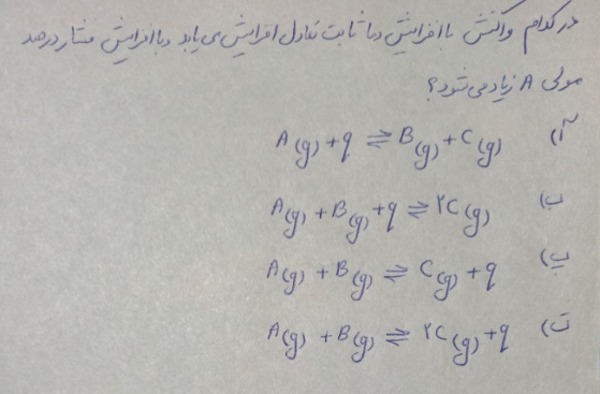 در کدام واکنش با افزایش دما ثابت تعادل افزایش می یابد و با افزایش فشار درصد
مولی A زیاد می شود؟
آ) A(g) + q ⇌ B(g) + C(g)
ب) A(g) + B(g) + q ⇌ ۲C(g)
پ) A(g) + B(g) ⇌ C(g) + q
ت) A(g) + B(g) ⇌ ۲C(g) + q